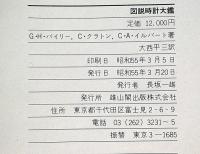 図説時計大鑑
定価 12,000円
G・H・バイリー, C・クラトン, C・A・イルバート著
大西平三訳
印刷日 昭和55年3月5日
発行日 昭和55年3月20日
発行者 長坂一雄
発行所 雄山閣出版株式会社
住所 東京都千代田区富士見2-6-9
電話 03(262)3231~5
振替 東京3-1685